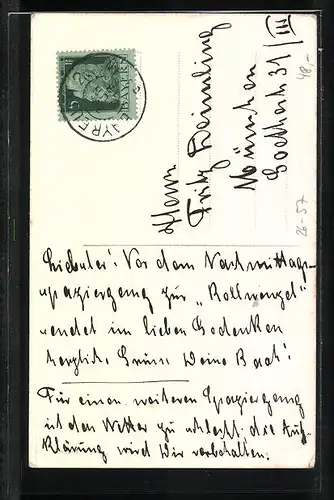 BAYERN
5
BAYREU
Herrn
Fritz Deimling
München
Goethestr. 31/III
48,-
26-57
Liebster! Vor dem Nachmittags-
spaziergang zur "Rollwenzel"
sendet im lieben Gedenken
herzlich. Gruss Deine
Für einen weiteren Spaziergang
ist das Wetter zu schlecht. die Auf-
klärung wird Dir vorbehalten.